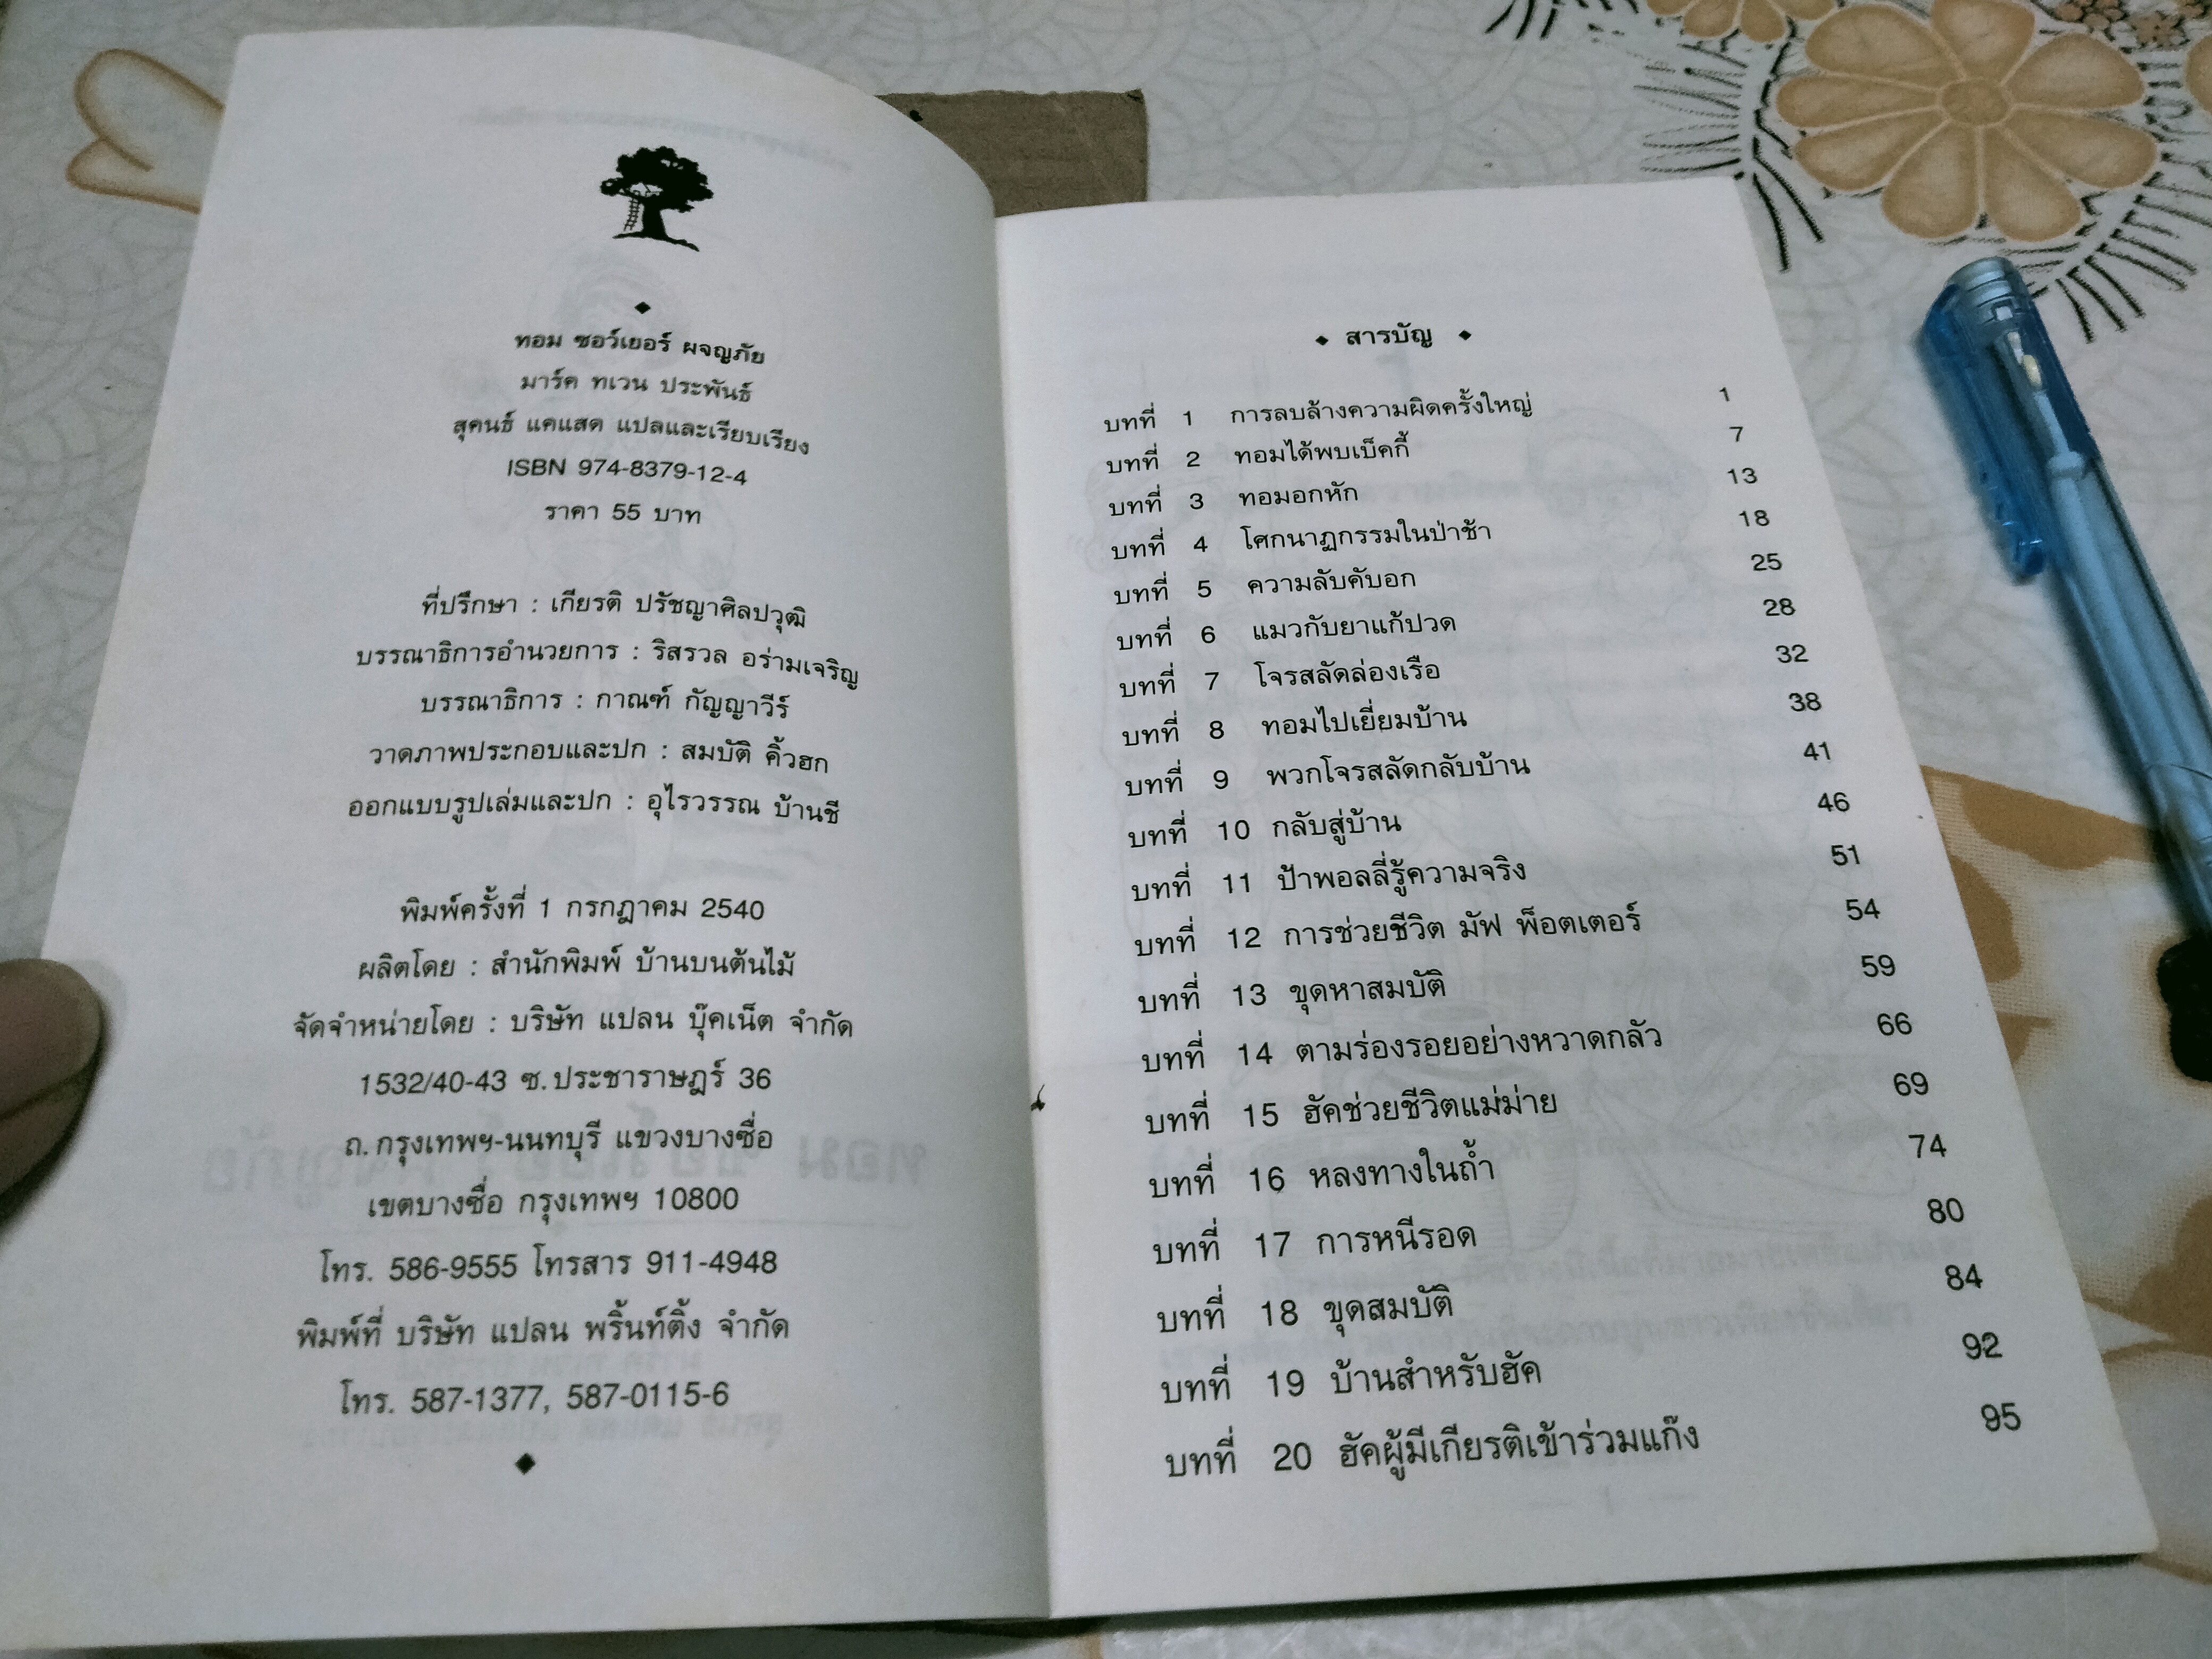 ทอม ซอว์เยอร์ ผจญภัย
มาร์ค ทเวน ประพันธ์
สุคนธ์ แคแสด แปลและเรียบเรียง
ISBN 974-8379-12-4
ราคา 55 บาท
ที่ปรึกษา : เกียรติ ปรัชญาศิลปวุฒิ
บรรณาธิการอำนวยการ : ริสรวล อร่ามเจริญ
บรรณาธิการ : กาณฑ์ กัญญาวีร์
วาดภาพประกอบและปก : สมบัติ คิ้วฮก
ออกแบบรูปเล่มและปก : อุไรวรรณ บ้านชี
พิมพ์ครั้งที่ 1 กรกฎาคม 2540
ผลิตโดย : สำนักพิมพ์ บ้านบนต้นไม้
จัดจำหน่ายโดย : บริษัท แปลน บุ๊คเน็ต จำกัด
1532/40-43 ซ.ประชาราษฎร์ 36
ถ.กรุงเทพฯ-นนทบุรี แขวงบางซื่อ
เขตบางซื่อ กรุงเทพฯ 10800
โทร. 586-9555 โทรสาร 911-4948
พิมพ์ที่ บริษัท แปลน พริ้นท์ติ้ง จำกัด
โทร. 587-1377, 587-0115-6
สารบัญ
บทที่ 1 การลบล้างความผิดครั้งใหญ่ 1
บทที่ 2 ทอมได้พบเบ็คกี้ 7
บทที่ 3 ทอมอกหัก 13
บทที่ 4 โศกนาฏกรรมในป่าช้า 18
บทที่ 5 ความลับคับอก 25
บทที่ 6 แมวกับยาแก้ปวด 28
บทที่ 7 โจรสลัดล่องเรือ 32
บทที่ 8 ทอมไปเยี่ยมบ้าน 38
บทที่ 9 พวกโจรสลัดกลับบ้าน 41
บทที่ 10 กลับสู่บ้าน 46
บทที่ 11 ป้าพอลลี่รู้ความจริง 51
บทที่ 12 การช่วยชีวิต มัฟ พ็อตเตอร์ 54
บทที่ 13 ขุดหาสมบัติ 59
บทที่ 14 ตามร่องรอยอย่างหวาดกลัว 66
บทที่ 15 ฮัคช่วยชีวิตแม่ม่าย 69
บทที่ 16 หลงทางในถ้ำ 74
บทที่ 17 การหนีรอด 80
บทที่ 18 ขุดสมบัติ 84
บทที่ 19 บ้านสำหรับฮัค 92
บทที่ 20 ฮัคผู้มีเกียรติเข้าร่วมแก๊ง 95